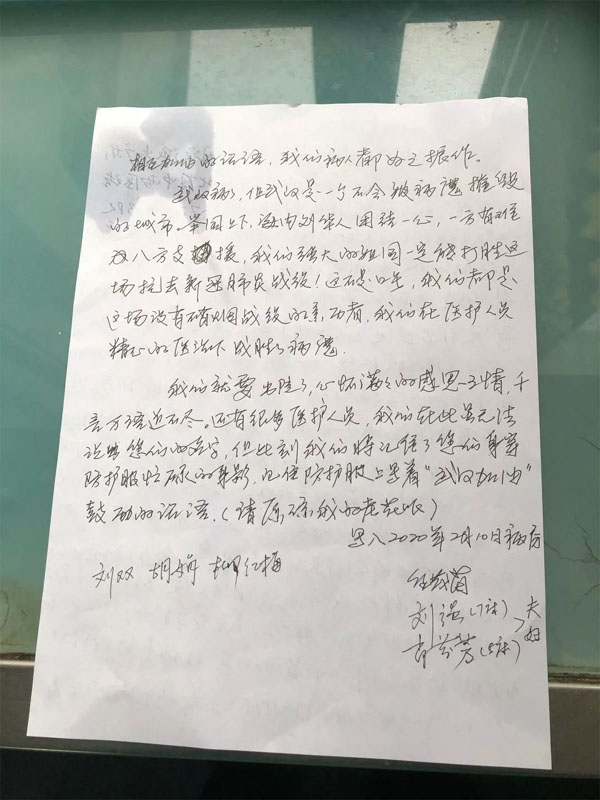 相互加油的话语，我们病人都为之振作。
武汉病了，但武汉是一个不会被病魔摧毁
的城市。举国上下，海内外华人团结一心，一方有难
八方支援，我们强大的祖国一定能打胜这
场抗击新冠肺炎战役！这不是口号，我们都是
这场没有硝烟战役的成功者，我们在医护人员
精心的医治下战胜了病魔
我们就要出院了，心怀满满的感恩之情，千
言万语道不尽。还有很多医护人员，我们在此虽无法
说出您们的名字，但此刻我们将记住了您们身穿
防护服忙碌的身影，记住防护服上写着“武汉加油”
鼓励的话语。（请原谅我的老花眼）
写入2020年2月10日病房
刘双 胡娟 红梅
刘强（7床）
芳（8床）
夫妇